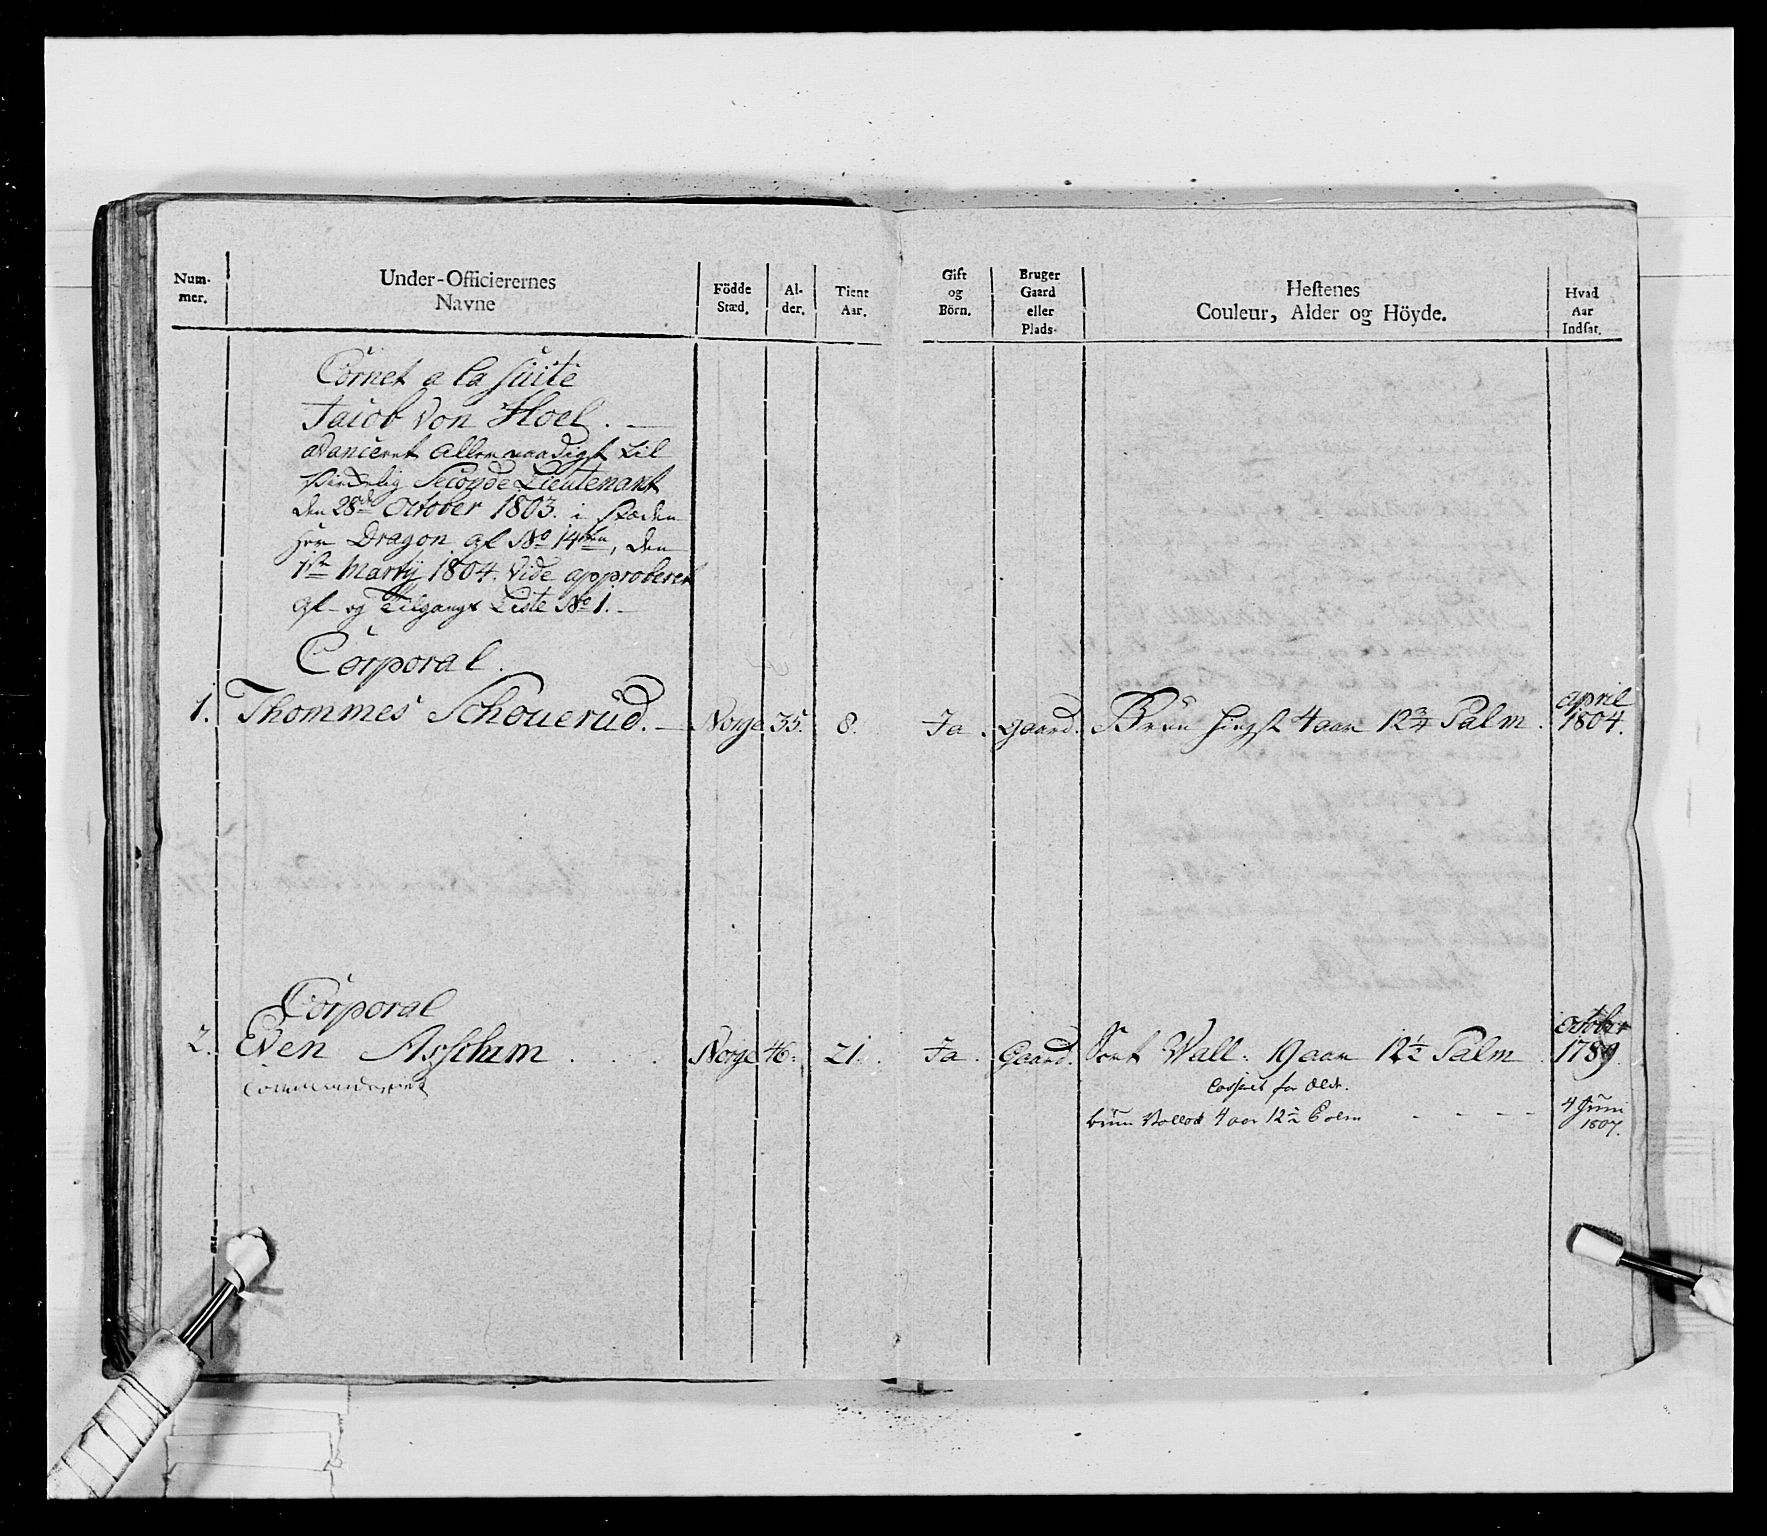 Num-
mer.
Under-Officierernes
Navne
Födde
Stæd.
Al-
der.
Tient
Aar.
Gift
og
Börn.
Bruger
Gaard
eller
Plads.
Hestenes
Couleur, Alder og Höyde.
Hvad
Aar
Indsat.
Cornet a la Suite
Jacob von Hoel.
avanceret allernaadigst til
virkelig Seconde Lieutenant
den 28de October 1803. i stæden
for Dragon af No 14ten, den
1ste Martij 1804. Vide approberet
af- og Tilgangs Liste No 1.
Corporal.
1. Thommes Schouerud. Norge 35. 8. Ja. gaard. Brun hingst 4 aar 12¾ Palm. april 1804.
Corporal
2. Even Asschim Norge 46. 21. Ja. Gaard. Sort Vall. 19 aar 12½ Palm october 1789.
Commanderet
Casseret for Æld.
bruun Vallak 4 aar 12½ Palm - - - - 4 Juni 1807.